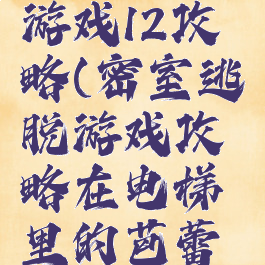 游戏12攻
略(密室逃
脱游戏攻
略在电梯
里的芭蕾